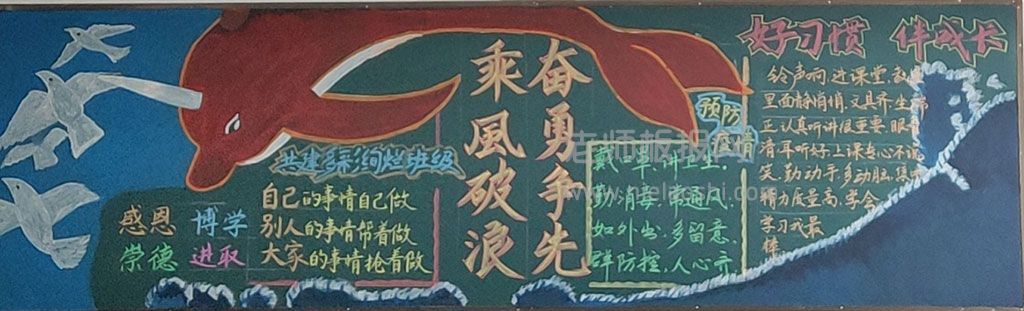 感恩 博学
崇德 进取
共建多彩绚烂班级
自己的事情自己做
别人的事情帮着做
大家的事情抢着做
乘風破浪
奋勇争先
预防
疫情
戴口罩,讲卫生,
勤消毒,常通风,
如外出,多留意,
群防控,人心齐
好习惯 伴成长
铃声响 进课堂 教室
里面静悄悄,文具齐 坐端
正 认真听讲很重要 眼
清耳听好 上课专心不说
笑,勤动手 多动脑,集中
精力质量高,学会
学习我最
棒
老师板报网